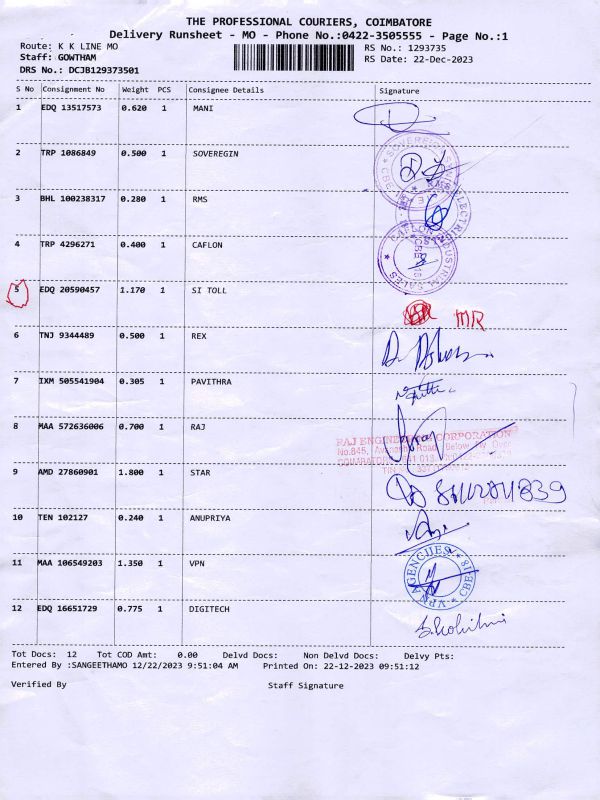 THE PROFESSIONAL COURIERS, COIMBATORE
Delivery Runsheet - MO - Phone No.:0422-3505555 - Page No.:1
Route: K K LINE MO RS No.: 1293735
Staff: GOWTHAM RS Date: 22-Dec-2023
DRS No.: DCJB129373501
S No Consignment No Weight PCS Consignee Details Signature
1 EDQ 13517573 0.620 1 MANI
2 TRP 1086849 0.500 1 SOVEREGIN
3 BHL 100238317 0.280 1 RMS
4 TRP 4296271 0.400 1 CAFLON
5 EDQ 20590457 1.170 1 SI TOLL
MR
6 TNJ 9344489 0.500 1 REX
7 IXM 505541904 0.305 1 PAVITHRA
8 MAA 572636006 0.700 1 RAJ
RAJ ENGINEERING CORPORATION
9 AMD 27860901 1.800 1 STAR
10 TEN 102127 0.240 1 ANUPRIYA
11 MAA 106549203 1.350 1 VPN
VPN AGENCIES
12 EDQ 16651729 0.775 1 DIGITECH
Tot Docs: 12 Tot COD Amt: 0.00 Delvd Docs: Non Delvd Docs: Delvy Pts:
Entered By :SANGEETHAMO 12/22/2023 9:51:04 AM Printed On: 22-12-2023 09:51:12
Verified By Staff Signature